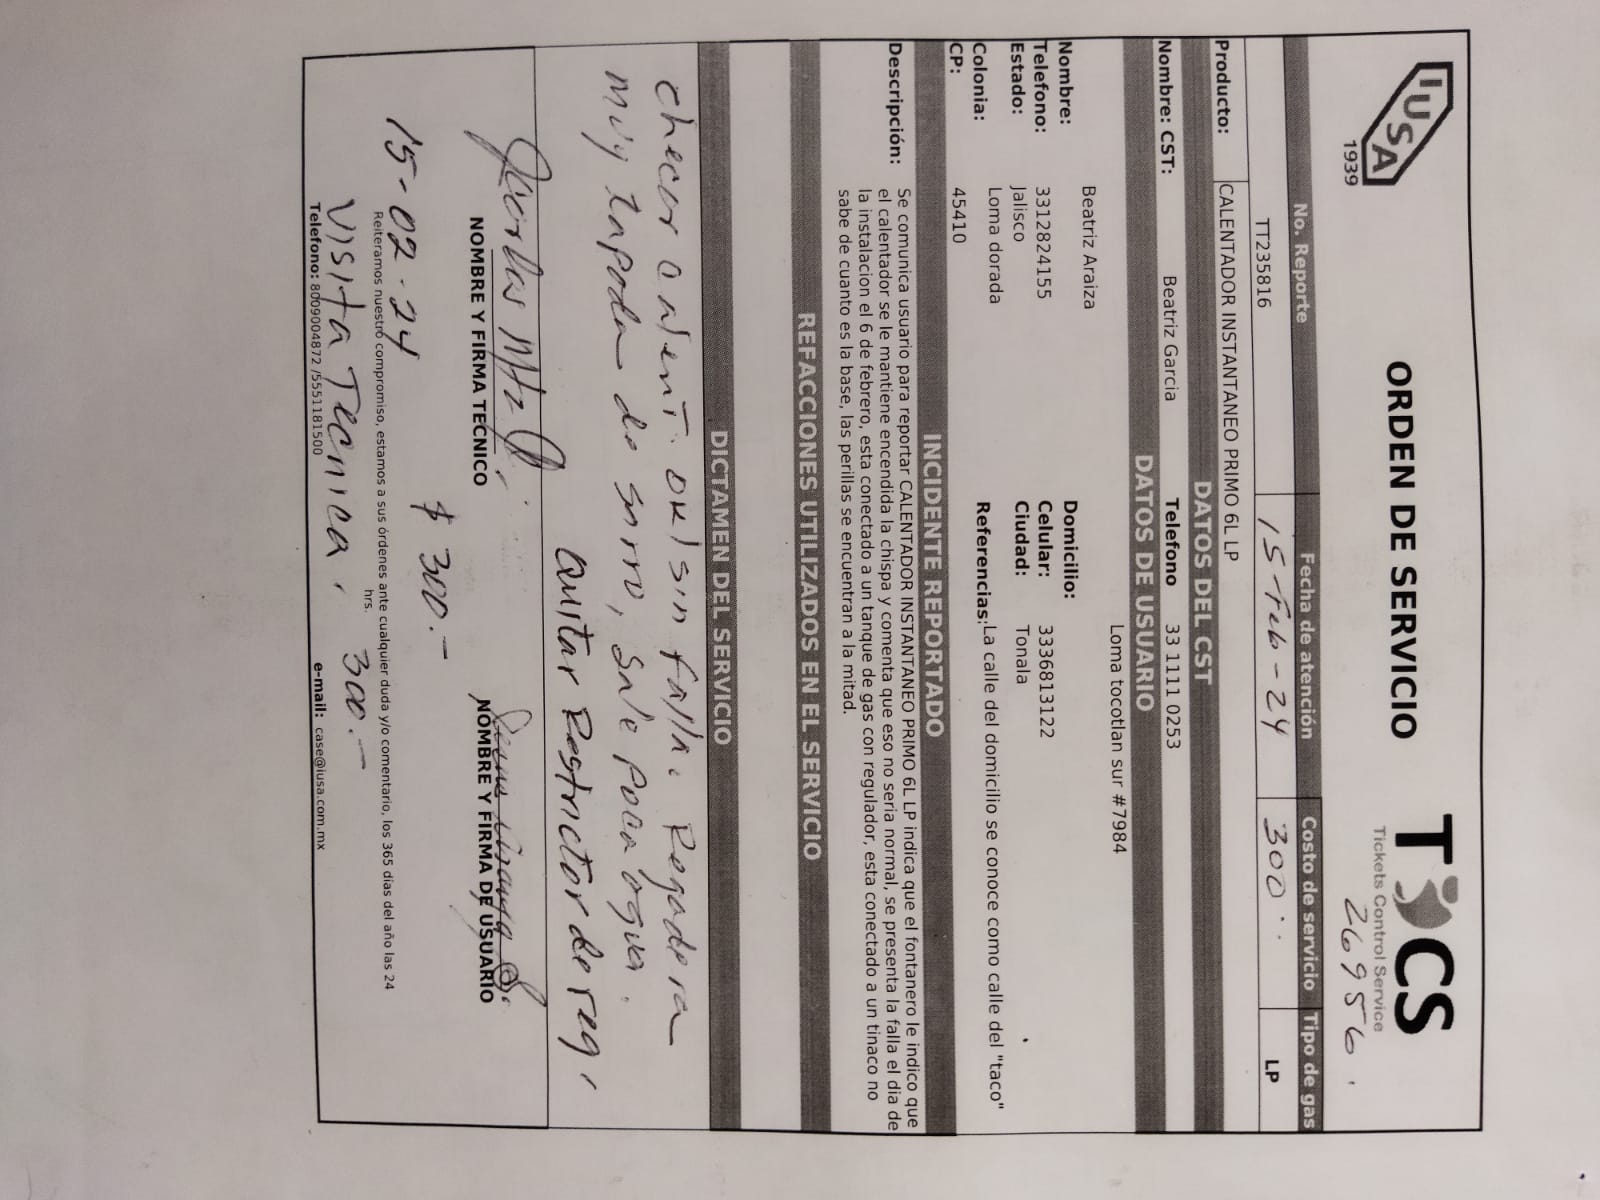 IUSA
1939
ORDEN DE SERVICIO
TCS
Tickets Control Service
269956.
No. Reporte Fecha de atención Costo de servicio Tipo de gas
TT235816 15-Feb-24 300.. LP
Producto: CALENTADOR INSTANTANEO PRIMO 6L LP
DATOS DEL CST
Nombre: CST: Beatriz Garcia Telefono 33 1111 0253
DATOS DE USUARIO
Nombre: Beatriz Araiza Domicilio: Loma tocotlan sur #7984
Telefono: 3312824155 Celular: 3336813122
Estado: Jalisco Ciudad: Tonala
Colonia: Loma dorada Referencias: La calle del domicilio se conoce como calle del "taco"
CP: 45410
INCIDENTE REPORTADO
Descripción: Se comunica usuario para reportar CALENTADOR INSTANTANEO PRIMO 6L LP indica que el fontanero le indico que
el calentador se le mantiene encendida la chispa y comenta que eso no seria normal, se presenta la falla el dia de
la instalacion el 6 de febrero, esta conectado a un tanque de gas con regulador, esta conectado a un tinaco no
sabe de cuanto es la base, las perillas se encuentran a la mitad.
REFACCIONES UTILIZADOS EN EL SERVICIO
DICTAMEN DEL SERVICIO
checar calent. ok/sin falla. Regadera
muy tapada de sarro, sale poca agua.
quitar Restrictor de reg,
NOMBRE Y FIRMA TECNICO
NOMBRE Y FIRMA DE USUARIO
$ 300.-
15-02-24
Reiteramos nuestro compromiso, estamos a sus órdenes ante cualquier duda y/o comentario, los 365 dias del año las 24
hrs.
Visita Tecnica. 300.-
Telefono: 8009004872 /5551181500 e-mail: case@iusa.com.mx